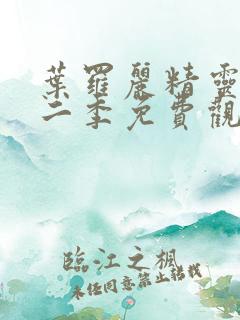 葉羅麗精靈
二季免費觀
臨江之楓
未經同意禁止轉載